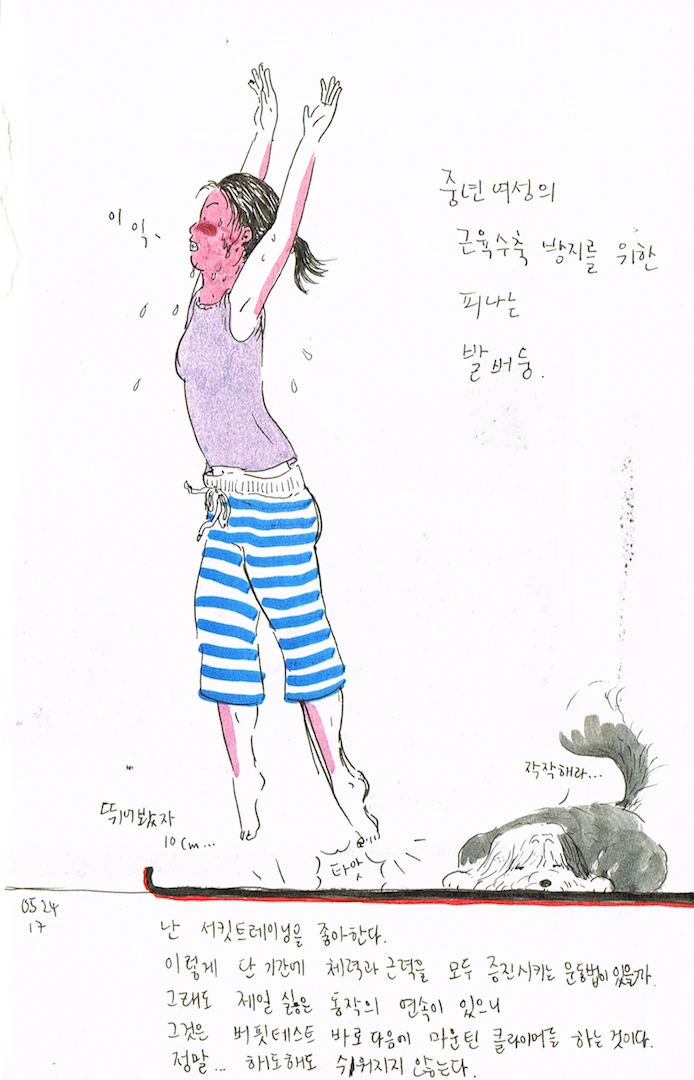 이익、
중년 여성의
근육수축 방지를 위한
피나는
발버둥.
작작해라...
뛰어봤자
10cm...
타앗
05 24
17
난 서킷트레이닝을 좋아한다.
이렇게 단기간에 체력과 근력을 모두 증진시키는 운동법이 있을까.
그래도 제일 싫은 동작의 연속이 있으니
그것은 버핏테스트 바로 다음에 마운틴 클라이머를 하는 것이다.
정말... 해도해도 쉬워지지 않는다.